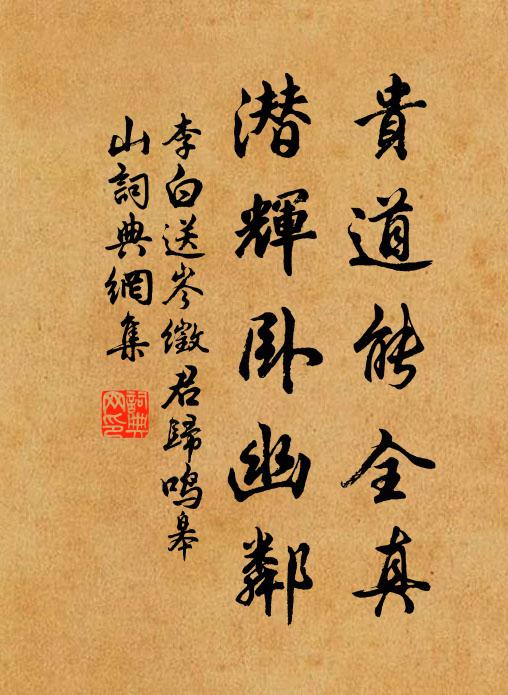 貴道能全真
潜輝卧幽鄰
李白送岑徵君歸鳴皋
山詞典網集
詞典
网印